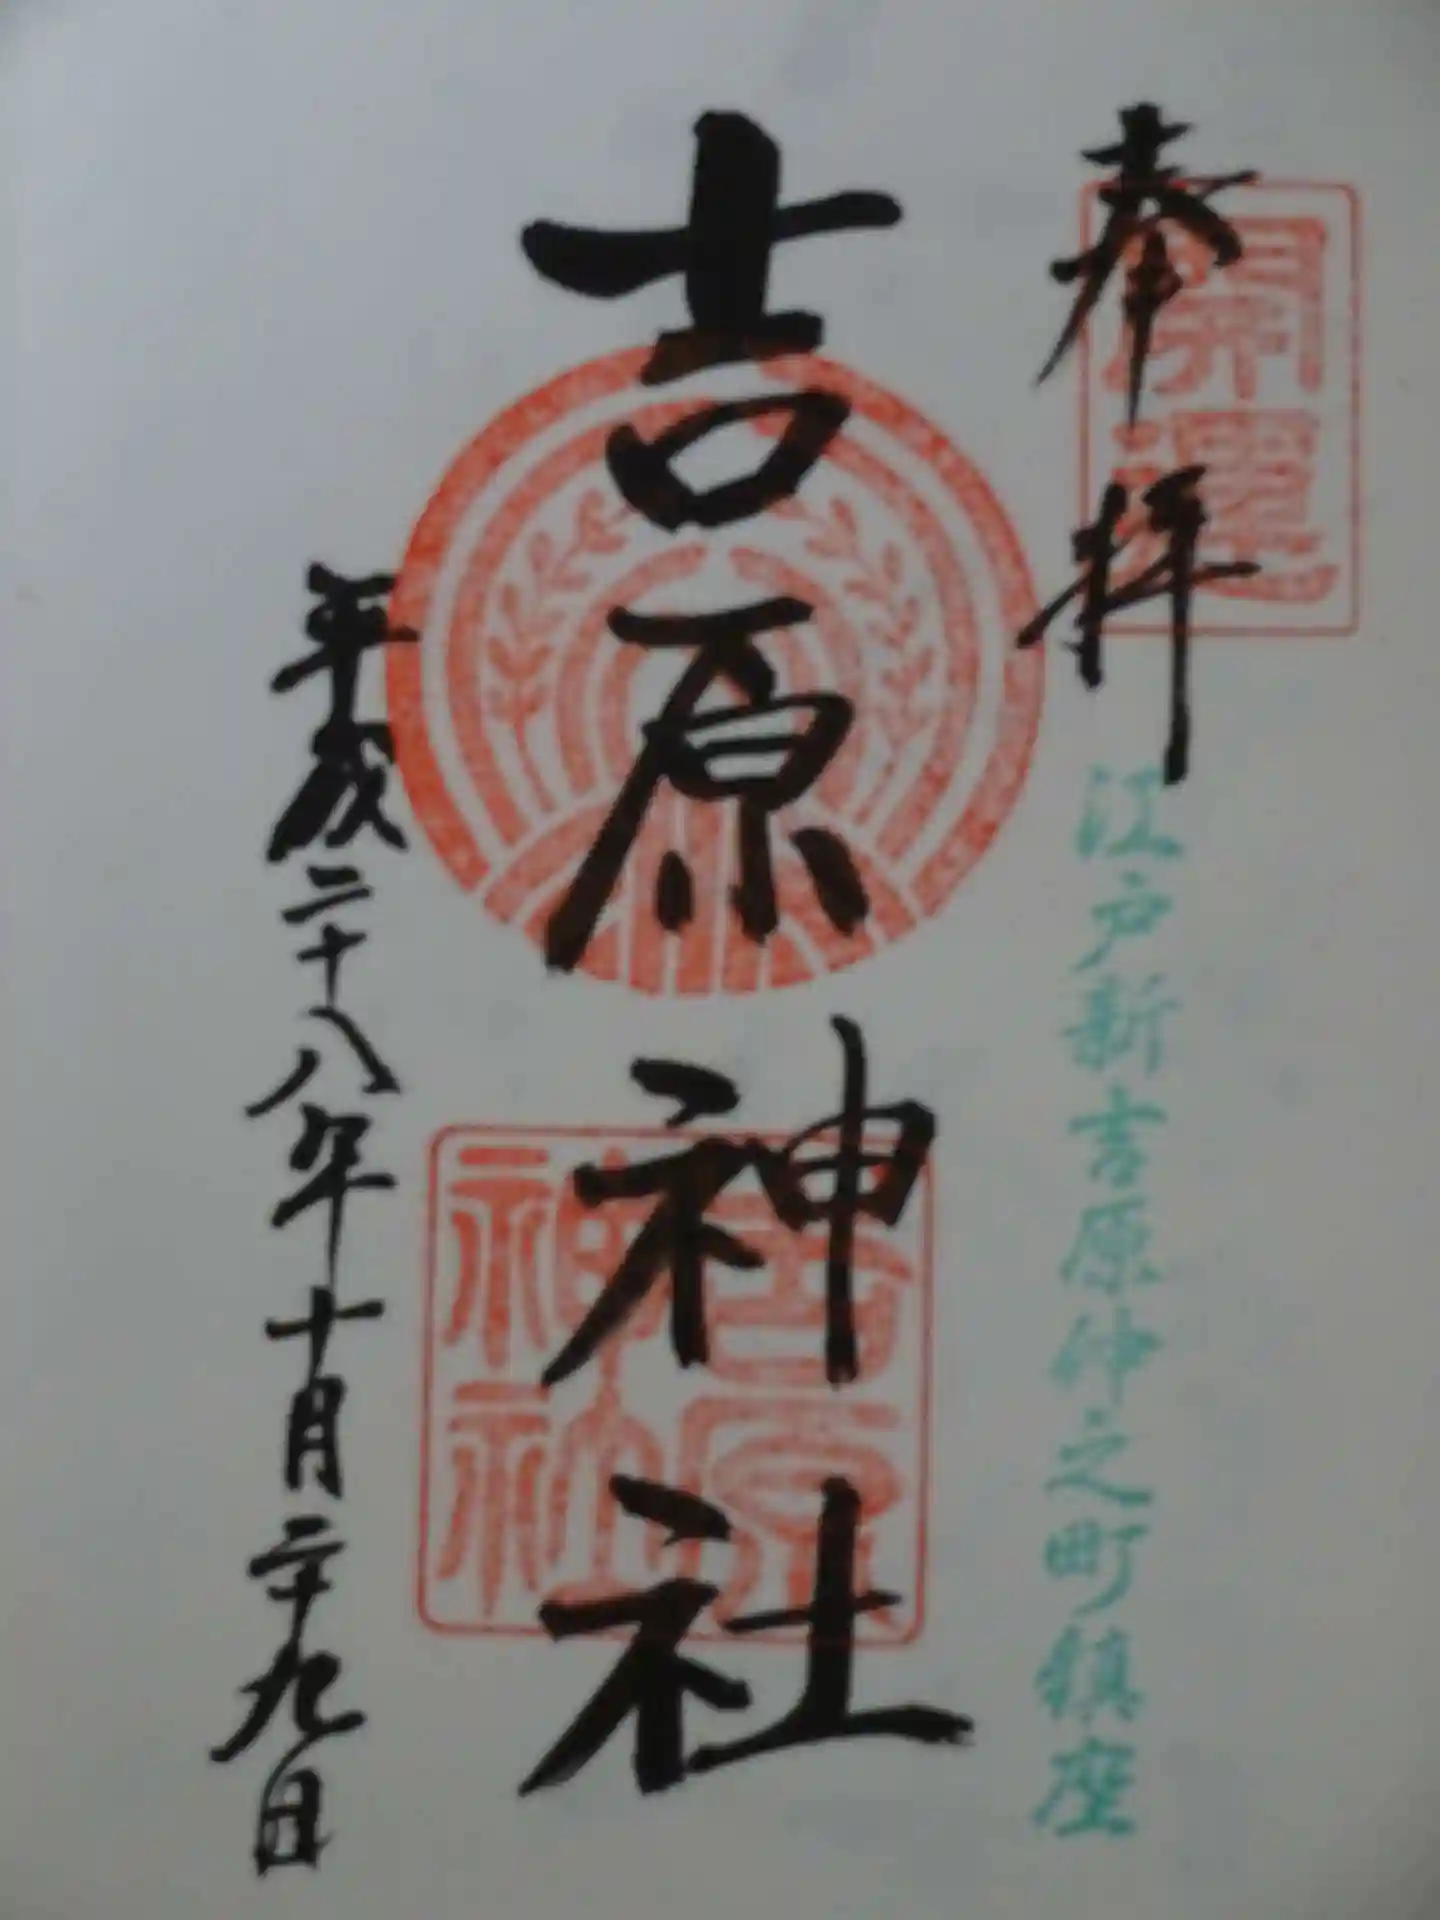 奉拝
開運
江戸新吉原仲之町鎮座
吉原神社
吉原
神社
平成二十八年十月二十九日